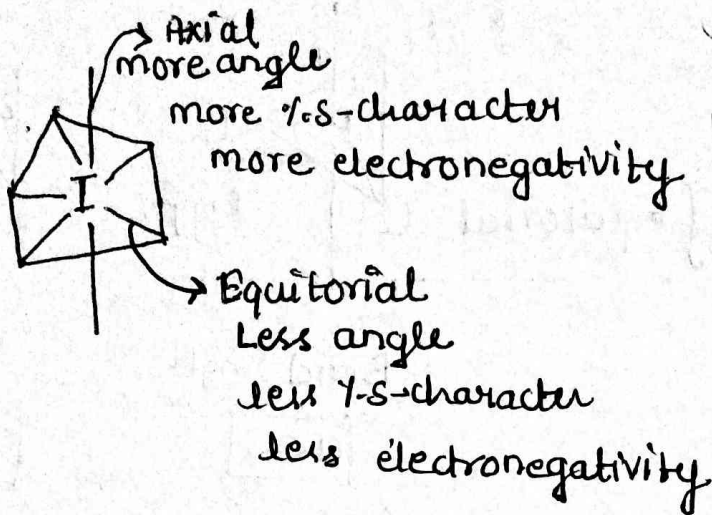 Axial
more angle
more %s-character
more electronegativity
I
Equitorial
Less angle
less %s-character
less electronegativity